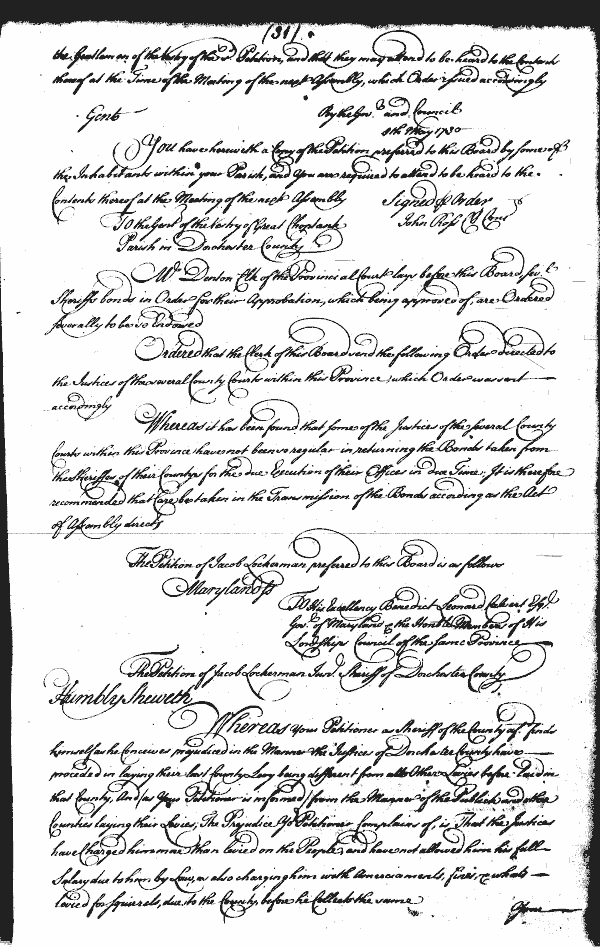 (31)
the Gentlemen of the Vestry of the sd. Petition, and that they may attend to be heard to the Contents
thereof at the Time of the Meeting of the next Assembly, which Order issued accordingly
By the Govr. and Council
Gents
8th May 1730
You have herewith a Copy of the Petition preferred to this Board by some of
the Inhabitants within your Parish, and you are required to attend to be heard to the
Contents thereof at the Meeting of the next Assembly
Signed p Order
To the Gent of the Vestry of Great Choptank
John Ross Cl Conl
Parish in Dorchester County
Mr. Denton Clk of the Provincial Court lays before this Board sevl.
Sheriffs bonds in Order for their Approbation, which being approved of, are Ordered
severally to be so Endorsed
Ordered that the Clerk of this Board send the following Order directed to
the Justices of the several County Courts within this Province, which Order was sent
accordingly
Whereas it has been found that some of the Justices of the several County
Courts within this Province have not been so regular in returning the Bonds taken from
the Sheriffes of their Countys for the due Execution of their Offices in due Time; It is therefore
recommended that Care be taken in the Transmission of the Bonds according as the Act
of Assembly directs
The Petition of Jacob Lockerman preferred to this Board is as follows
Maryland ss
To His Excellency Benedict Leonard Calvert Esqr.
Govr. of Maryland & the Honble Members of His
Lordships Council of the same Province
The Petition of Jacob Lockerman Junr. Sheriff of Dorchester County
Humbly Sheweth
Whereas your Petitioner as Sheriff of the County afd. finds
himself as he Conceives prejudiced in the Manner the Justices of Dorchester County have
proceded in laying their last County Levy being different from all Other Levies before laid in
that County, And (as Your Petitioner is informed) from the Manner of the Publick and other
Counties laying their Levies; The Prejudice Yor Petitioner Complains of, is, That the Justices
have Charged him more than levied on the People, and have not allowed him his full
Salary due to him by Law, as also charging him with Amerciaments, fines, & whats
levied for Squirrels, due to the County, before he Collects the same